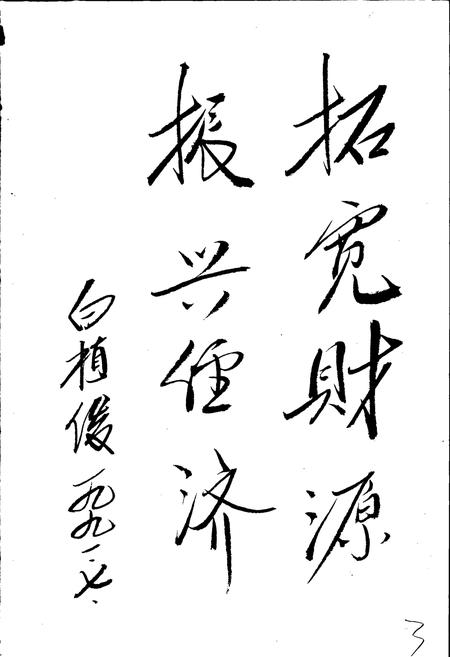 拓宽财源
振兴经济
白植俊 一九九一·七·
3